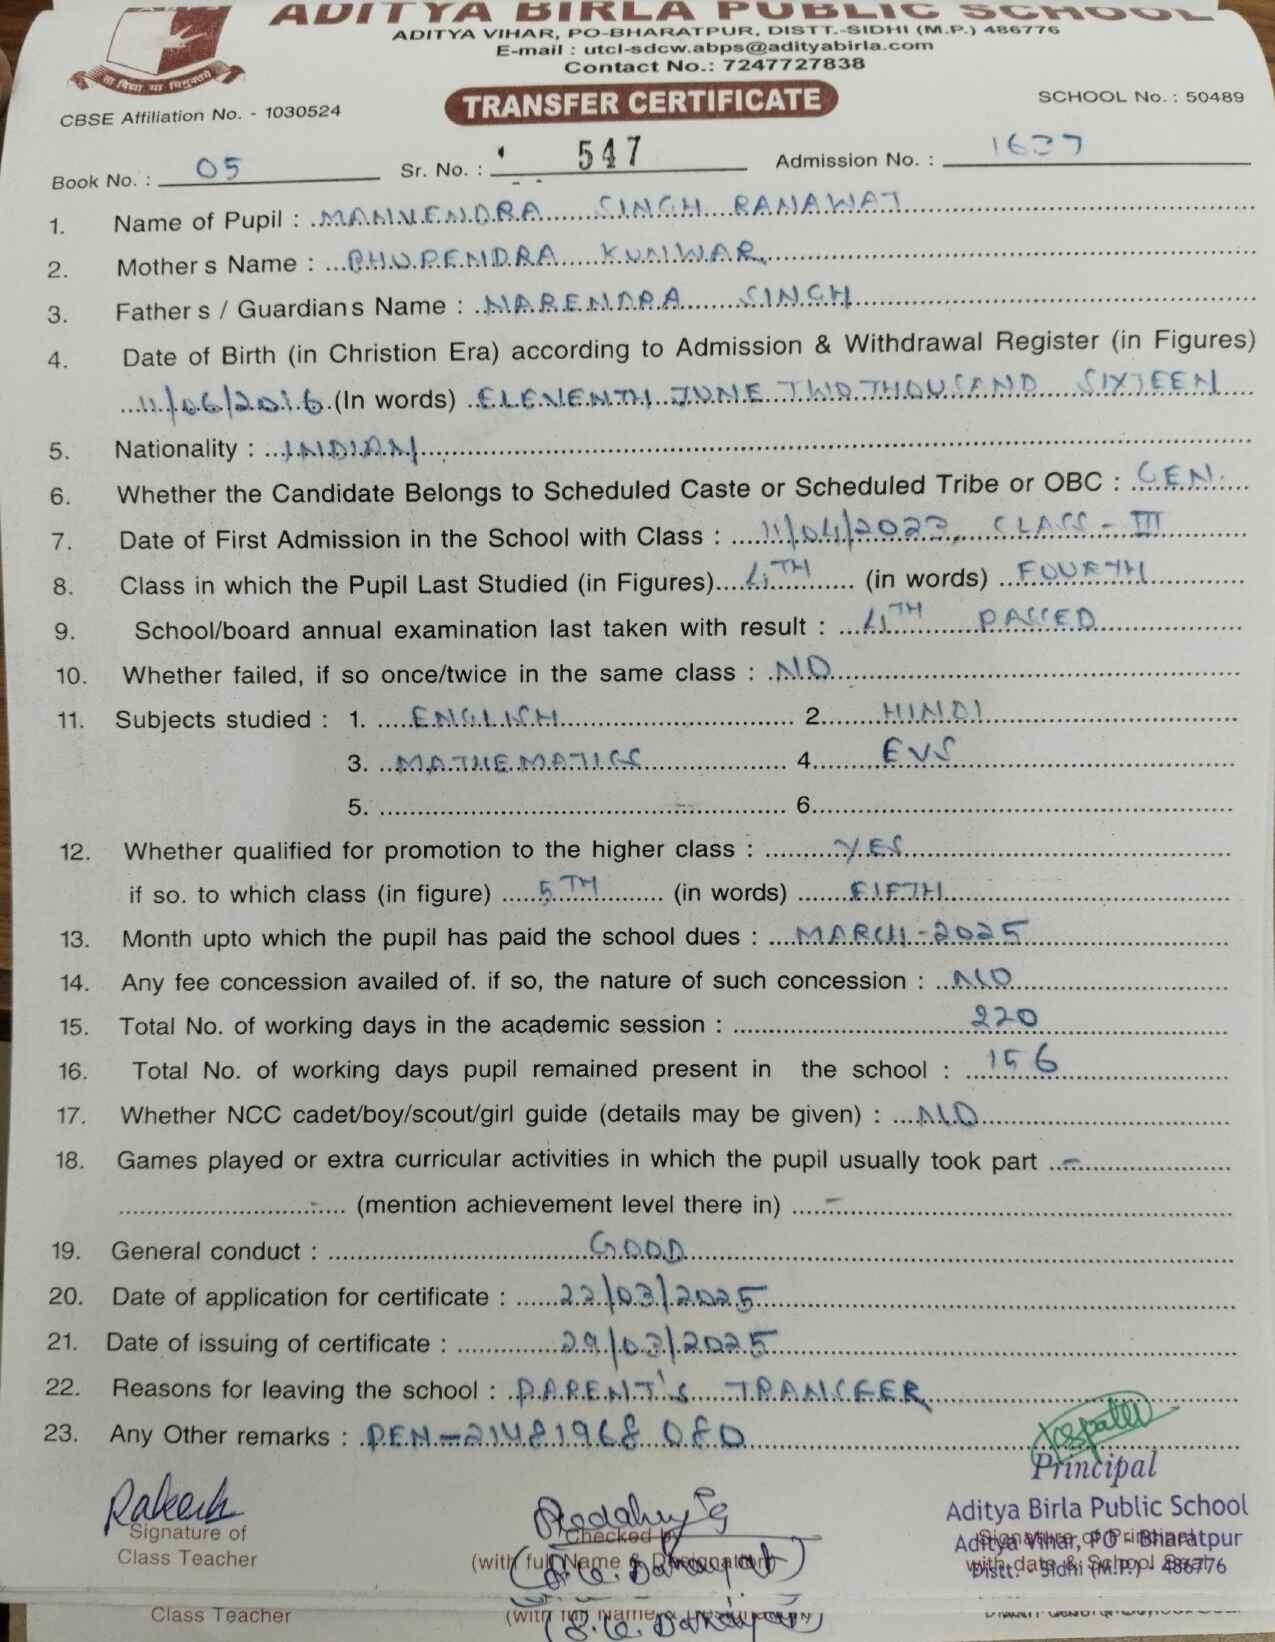 ADITYA BIRLA PUBLIC SCHOOL
ADITYA VIHAR, PO-BHARATPUR, DISTT.-SIDHI (M.P.) 486776
E-mail : utcl-sdcw.abps@adityabirla.com
Contact No.: 7247727838
सा विद्या या विमुक्तये
CBSE Affiliation No. - 1030524
TRANSFER CERTIFICATE
SCHOOL No. : 50489
Book No. : 05 Sr. No. : 547 Admission No. : 1637
1. Name of Pupil : MANVENDRA SINGH RANAWAT
2. Mother s Name : BHUPENDRA KUNWAR
3. Father s / Guardian s Name : NARENDRA SINGH
4. Date of Birth (in Christion Era) according to Admission & Withdrawal Register (in Figures)
11/06/2016 (In words) ELEVENTH JUNE TWO THOUSAND SIXTEEN
5. Nationality : INDIAN
6. Whether the Candidate Belongs to Scheduled Caste or Scheduled Tribe or OBC : GEN.
7. Date of First Admission in the School with Class : 11/04/2023, CLASS - III
8. Class in which the Pupil Last Studied (in Figures) 4TH (in words) FOURTH
9. School/board annual examination last taken with result : 4TH PASSED
10. Whether failed, if so once/twice in the same class : NO
11. Subjects studied : 1. ENGLISH 2. HINDI
3. MATHEMATICS 4. EVS
5. 6.
12. Whether qualified for promotion to the higher class : YES
if so. to which class (in figure) 5TH (in words) FIFTH
13. Month upto which the pupil has paid the school dues : MARCH-2025
14. Any fee concession availed of. if so, the nature of such concession : NO
15. Total No. of working days in the academic session : 220
16. Total No. of working days pupil remained present in the school : 156
17. Whether NCC cadet/boy/scout/girl guide (details may be given) : NO
18. Games played or extra curricular activities in which the pupil usually took part -
- (mention achievement level there in) -
19. General conduct : GOOD
20. Date of application for certificate : 22/03/2025
21. Date of issuing of certificate : 29/03/2025
22. Reasons for leaving the school : PARENT'S TRANSFER
23. Any Other remarks : PEN-21481968080
Principal
Rakesh Aditya Birla Public School
Signature of Checked by Aditya Vihar, PO - Bharatpur
Signature of Principal
Class Teacher (with full Name & Designation) Distt. - Sidhi (M.P.) - 486776
with date & School Seal
Class Teacher (with full Name & Designation)